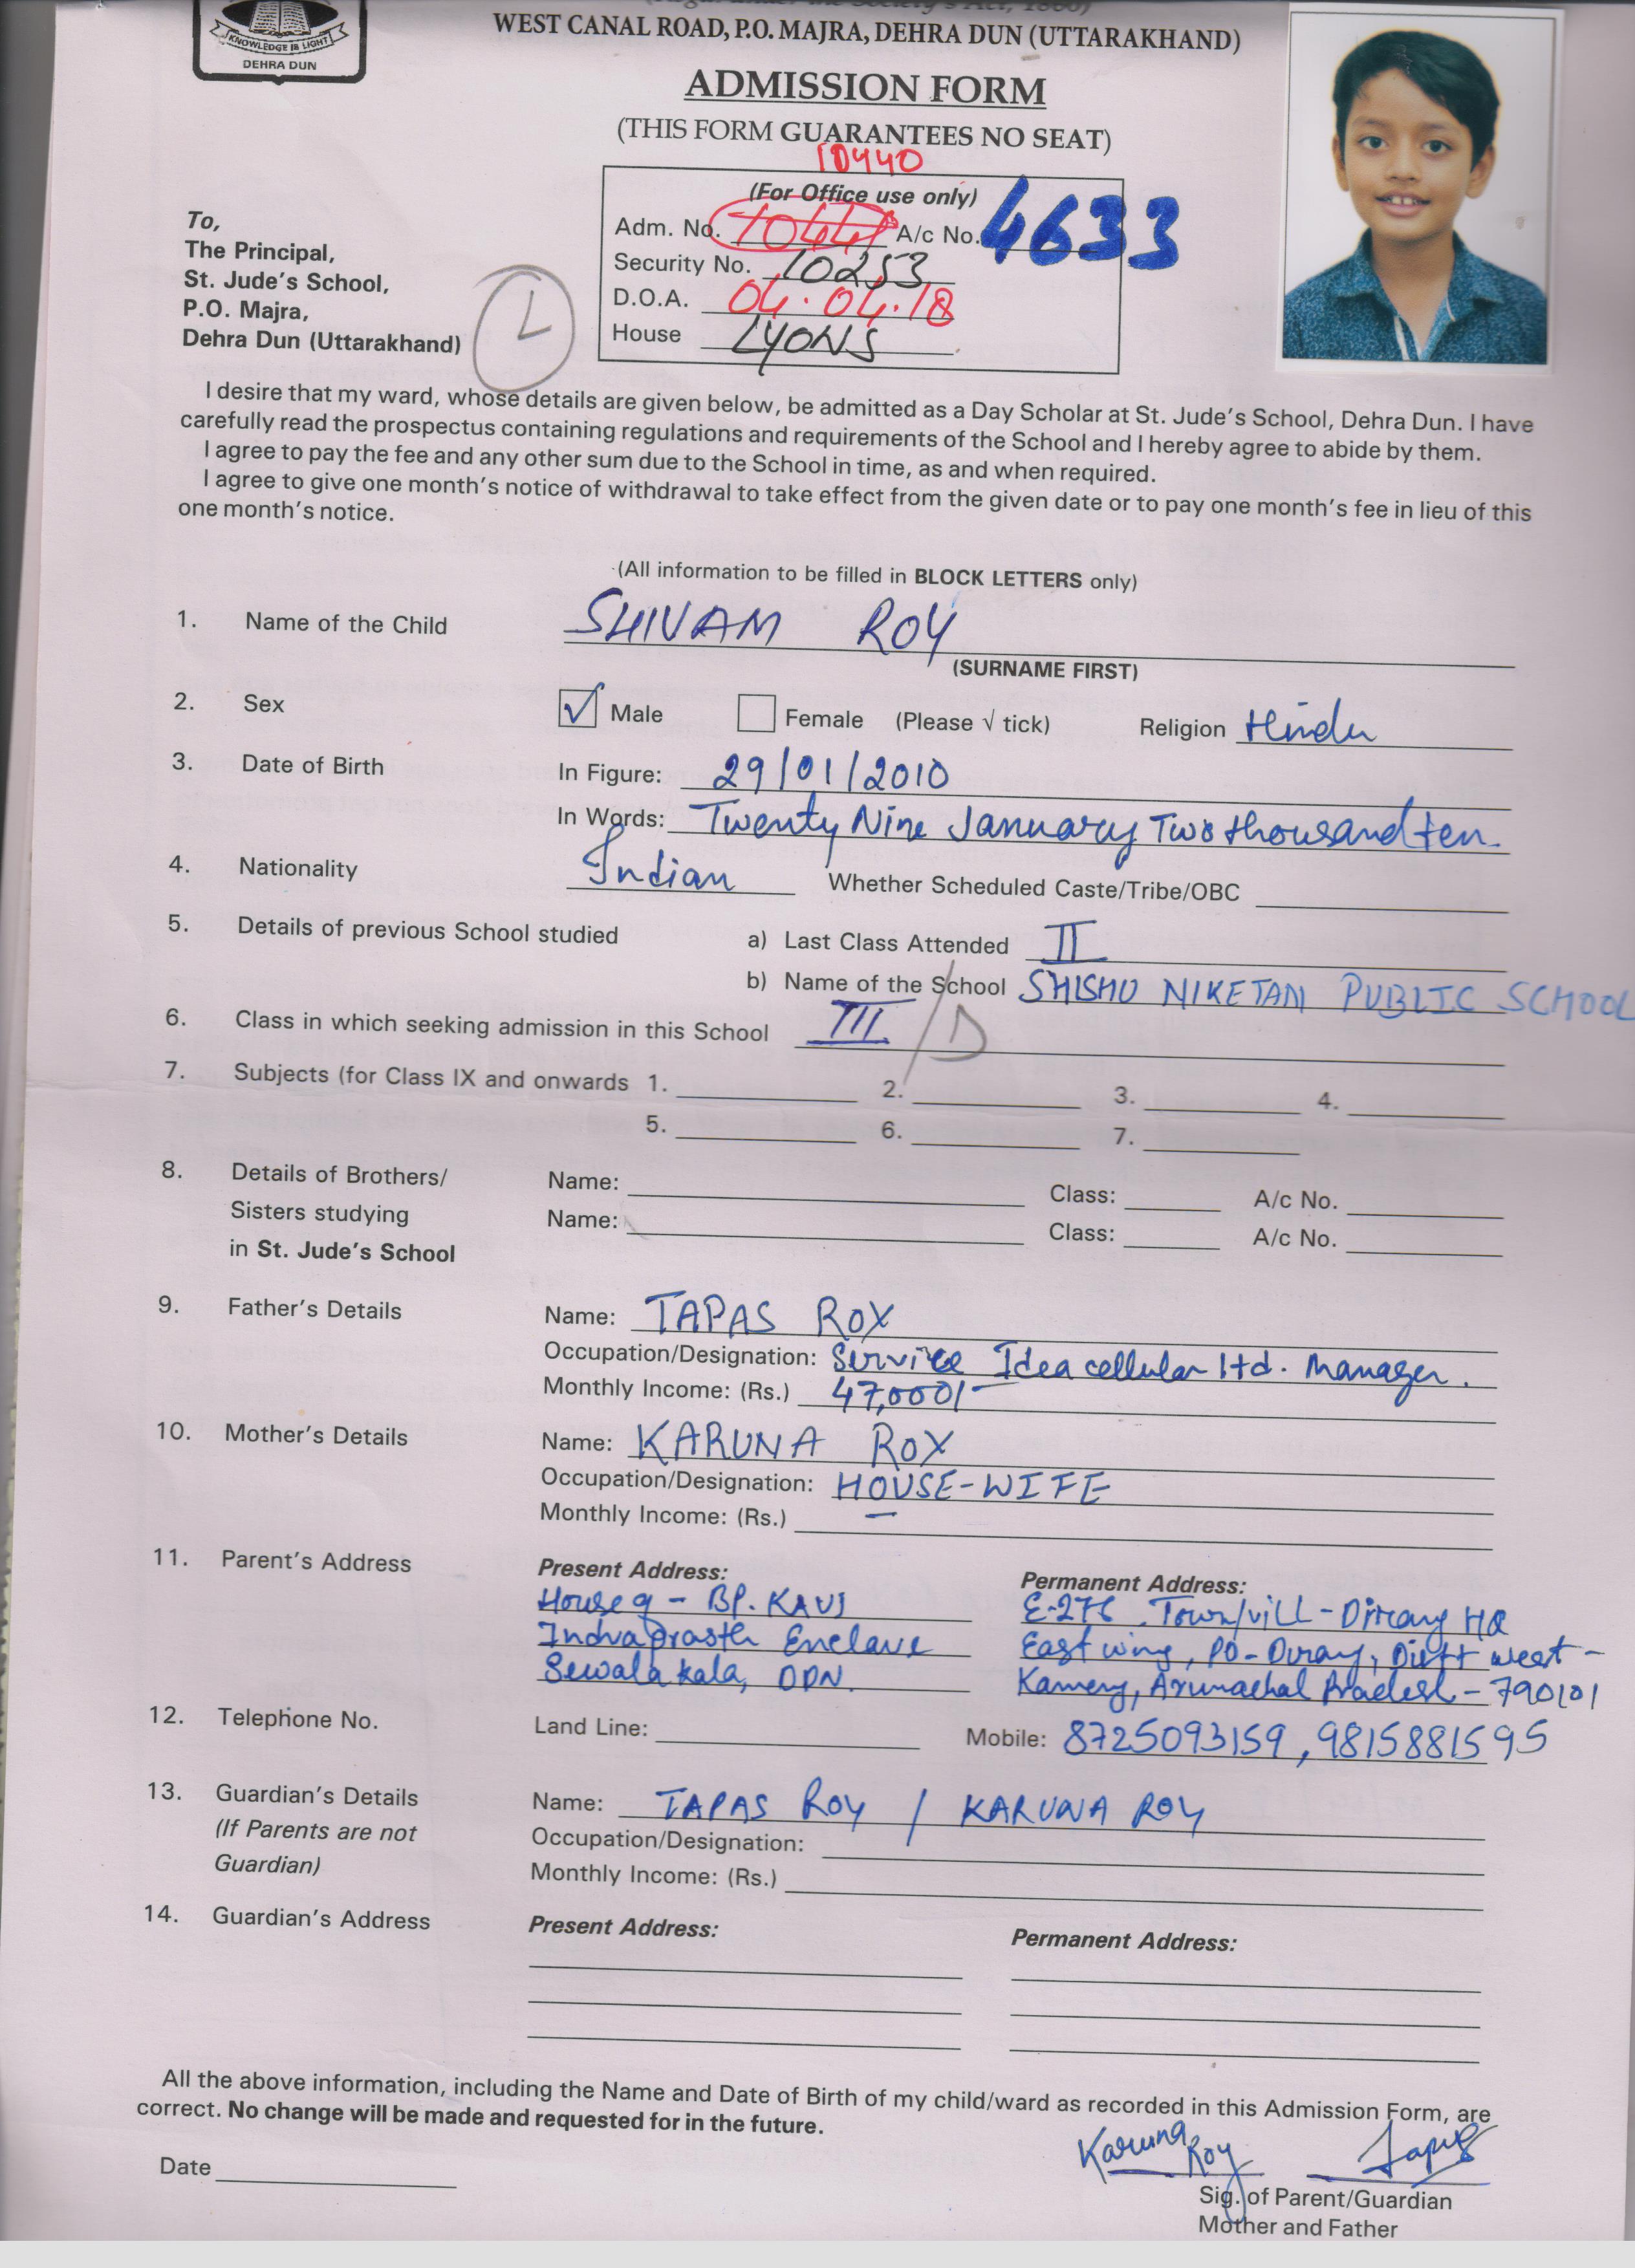 KNOWLEDGE IS LIGHT
DEHRA DUN
WEST CANAL ROAD, P.O. MAJRA, DEHRA DUN (UTTARAKHAND)
ADMISSION FORM
(THIS FORM GUARANTEES NO SEAT)
10440
(For Office use only)
Adm. No. 10441 A/c No. 4633
Security No. 10253
D.O.A. 04.04.18
House LYONS
To,
The Principal,
St. Jude's School,
P.O. Majra,
Dehra Dun (Uttarakhand)
L
I desire that my ward, whose details are given below, be admitted as a Day Scholar at St. Jude's School, Dehra Dun. I have
carefully read the prospectus containing regulations and requirements of the School and I hereby agree to abide by them.
I agree to pay the fee and any other sum due to the School in time, as and when required.
I agree to give one month's notice of withdrawal to take effect from the given date or to pay one month's fee in lieu of this
one month's notice.
(All information to be filled in BLOCK LETTERS only)
1. Name of the Child SHIVAM ROY
(SURNAME FIRST)
2. Sex ✓ Male Female (Please √ tick) Religion Hindu
3. Date of Birth In Figure: 29/01/2010
In Words: Twenty Nine January Two thousand ten.
4. Nationality Indian Whether Scheduled Caste/Tribe/OBC
5. Details of previous School studied a) Last Class Attended II
b) Name of the School SHISHU NIKETAN PUBLIC SCHOOL
6. Class in which seeking admission in this School III / D
7. Subjects (for Class IX and onwards 1. 2. 3. 4.
5. 6. 7.
8. Details of Brothers/ Name: Class: A/c No.
Sisters studying Name: Class: A/c No.
in St. Jude's School
9. Father's Details Name: TAPAS ROY
Occupation/Designation: Service Idea cellular ltd. Manager.
Monthly Income: (Rs.) 47,000/-
10. Mother's Details Name: KARUNA ROY
Occupation/Designation: HOUSE-WIFE
Monthly Income: (Rs.) —
11. Parent's Address Present Address: Permanent Address:
House 9 - BP. E-276, Town/vill - Dirang HQ
Indraprasth Enclave East wing, PO-Dirang, Distt west -
Sewala kala, DDN. Kameng, Arunachal Pradesh - 790101
12. Telephone No. Land Line: Mobile: 8725093159, 9815881595
13. Guardian's Details Name: TAPAS ROY / KARUNA ROY
(If Parents are not Occupation/Designation:
Guardian) Monthly Income: (Rs.)
14. Guardian's Address Present Address: Permanent Address:
All the above information, including the Name and Date of Birth of my child/ward as recorded in this Admission Form, are
correct. No change will be made and requested for in the future.
Karuna Roy Tapas
Date
Sig. of Parent/Guardian
Mother and Father